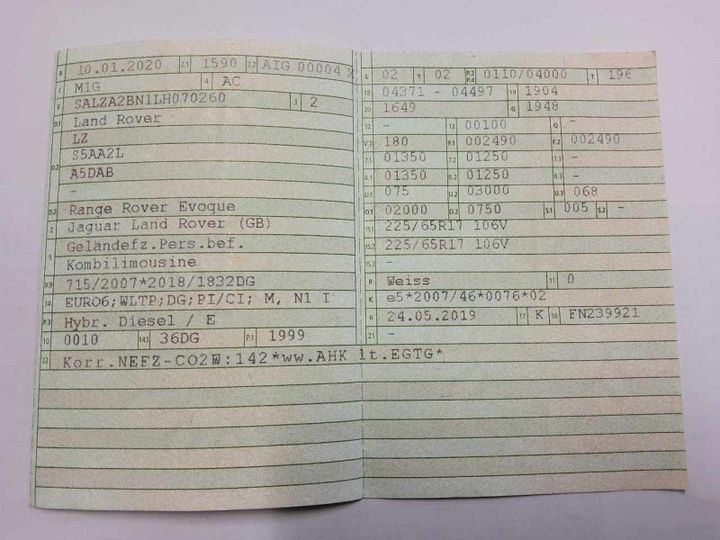 B 10.01.2020 2.1 1590 2.2 AIG 00004
J M1G 4 AC
E SALZA2BN1LH070260 3 2
D.1 Land Rover
LZ
D.2 S5AA2L
A5DAB
-
D.3 Range Rover Evoque
2 Jaguar Land Rover (GB)
5 Geländefz.Pers.bef.
Kombilimousine
V.9 715/2007*2018/1832DG
14 EURO6;WLTP;DG;PI/CI; M, N1 I
P.3 Hybr. Diesel / E
10 0010 14.1 36DG P.1 1999
22 Korr.NEFZ-CO2W:142*ww.AHK lt.EGTG*
L 02 9 02 P.2 P.4 0110/04000 T 196
18 04371 - 04497 19 1904
20 1649 G 1948
12 - 13 00100 Q -
V.7 180 F.1 002490 F.2 002490
7.1 01350 7.2 01250 7.3 -
8.1 01350 8.2 01250 8.3 -
U.1 075 U.2 03000 U.3 068
O.1 02000 O.2 0750 S.1 005 S.2 -
15.1 225/65R17 106V
15.2 225/65R17 106V
15.3 -
R Weiss 11 0
K e5*2007/46*0076*02
6 24.05.2019 17 K 16 FN239921
21 -